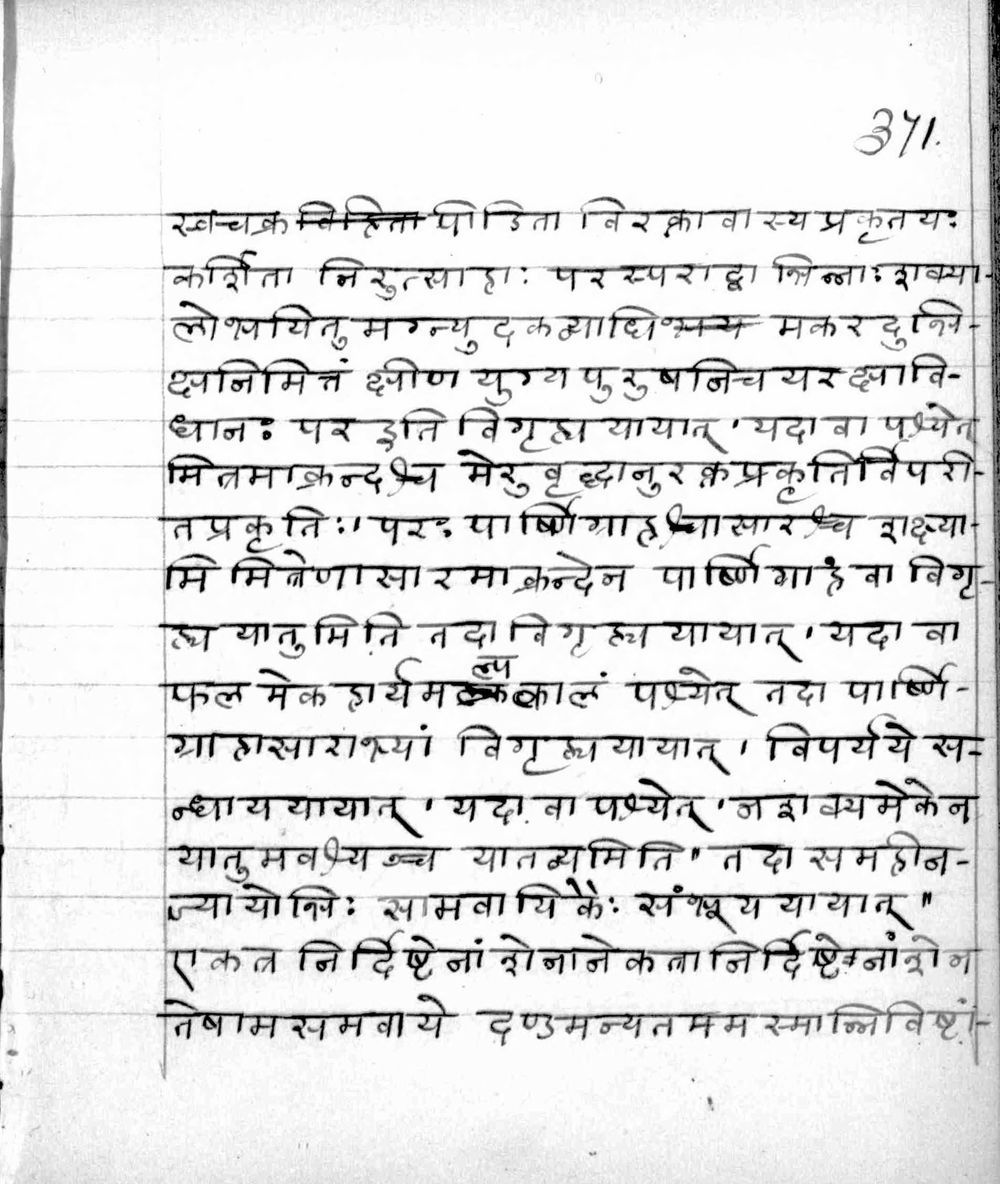 371.
स्वचक्र विहिता पीडिता विरक्ता वास्य प्रकृतयः
कर्शिता निरुत्साहाः परस्पराद्वा भिन्नाः शक्या-
लोभयितुमग्न्युदकव्याधिभय मकरदुर्भि-
क्षनिमित्तं क्षीणयुग्यपुरुषनिचयरक्षावि-
धानः पर इति विगृह्य यायात् । यदा वा पश्येत्
मित्रमाक्रन्दश्च मेरु वृद्धानुरक्तप्रकृतिर्विपरी-
तप्रकृतिः । परः पार्ष्णिग्राहश्चासारश्च शक्ष्या-
मि मित्रेणासारमाक्रन्देन पार्ष्णिग्राहं वा विगृ-
ह्य यातुमिति तदा विगृह्य यायात् । यदा वा
फलमेकहार्यमल्पकालं पश्येत् तदा पार्ष्णि-
ग्राहासाराभ्यां विगृह्य यायात् । विपर्यये स-
न्धाय यायात् । यदा वा पश्येत् । न शक्यमेकेन
यातुमवश्यञ्च यातव्यमिति । तदा समहीन-
ज्यायोभिः सामवायिकैः संभूय यायात् ॥
एकत्र निर्दिष्टेनांशेनानेकत्रानिर्दिष्टेनांशेन
तेषामसमवाये दण्डमन्यतममस्मान्निविष्टां-